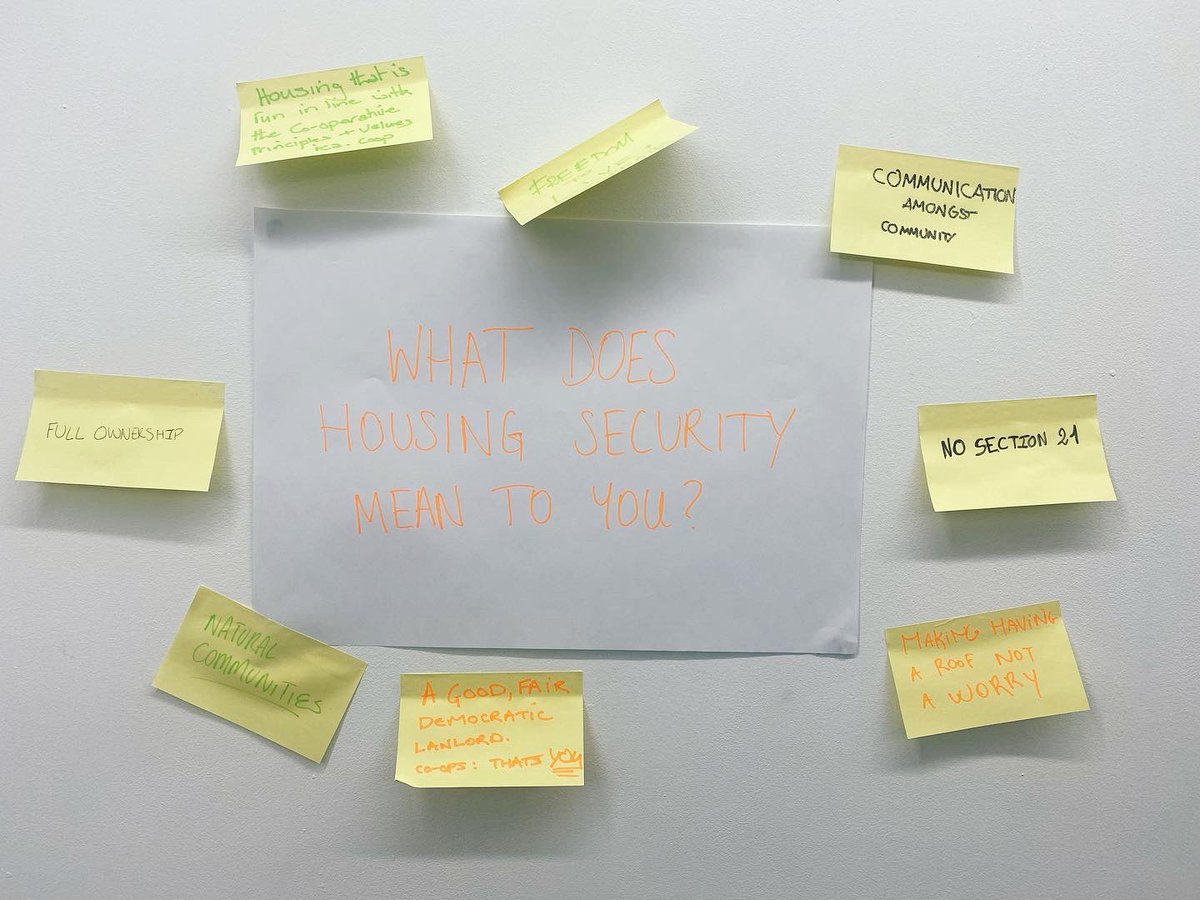 Housing that is
run in line with
the Co-operative
Principles + Values
ica.coop
FREEDOM
COMMUNICATION
AMONGST
COMMUNITY
WHAT DOES
HOUSING SECURITY
MEAN TO YOU?
FULL OWNERSHIP
NO SECTION 21
NATURAL
COMMUNITIES
A GOOD, FAIR
DEMOCRATIC
LANLORD.
CO-OPS: THATS YOU
MAKING HAVING
A ROOF NOT
A WORRY